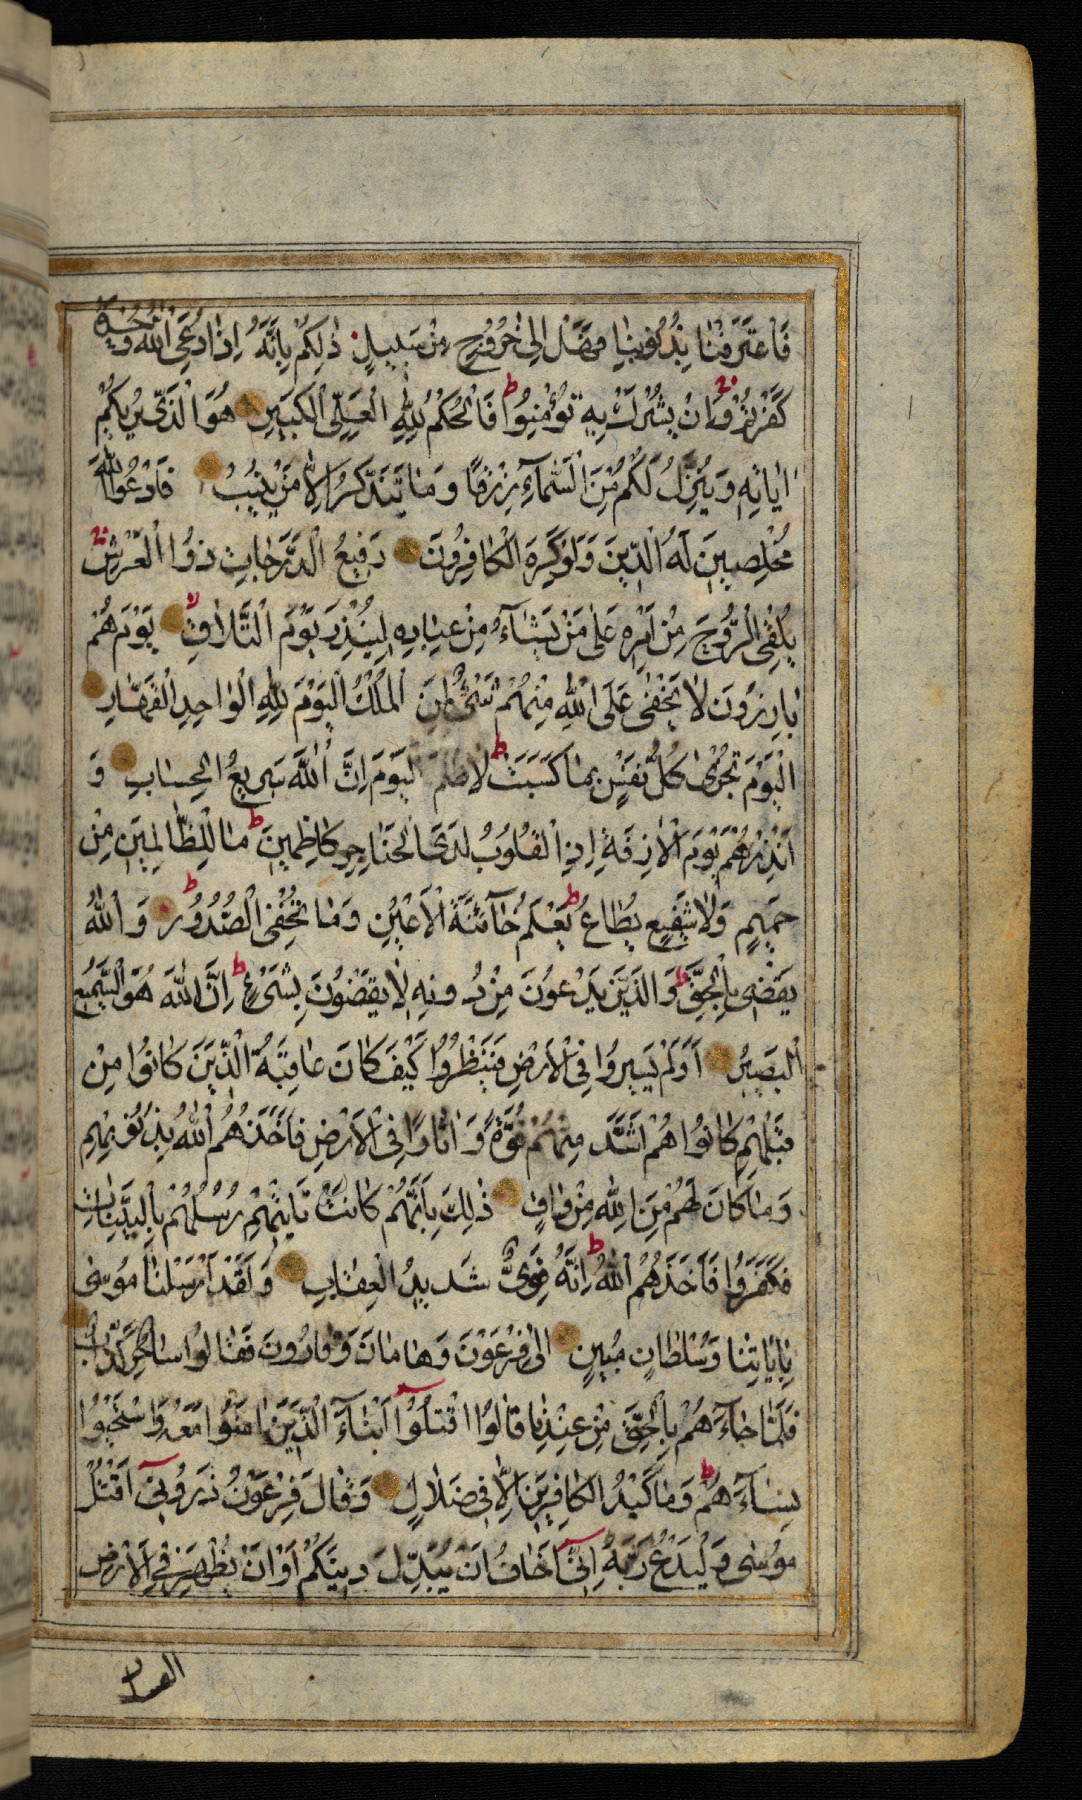 فَاعْتَرَفْنَا بِذُنُوبِنَا فَهَلْ اِلٰى خُرُوجٍ مِنْ سَبِيلٍ ذٰلِكُمْ بِاَنَّهُ اِذَا دُعِيَ اللّٰهُ وَحْدَهُ
كَفَرْتُمْ وَاِنْ يُشْرَكْ بِهِ تُؤْمِنُوا ط فَالْحُكْمُ لِلّٰهِ الْعَلِيِّ الْكَبِيرِ هُوَ الَّذِي يُرِيكُمْ
اٰيَاتِهِ وَيُنَزِّلُ لَكُمْ مِنَ السَّمَآءِ رِزْقًا وَمَا يَتَذَكَّرُ اِلَّا مَنْ يُنِيبُ فَادْعُوا اللّٰهَ
مُخْلِصِينَ لَهُ الدِّينَ وَلَوْ كَرِهَ الْكَافِرُونَ رَفِيعُ الدَّرَجَاتِ ذُوا الْعَرْشِ
يُلْقِي الرُّوحَ مِنْ اَمْرِهِ عَلٰى مَنْ يَشَآءُ مِنْ عِبَادِهِ لِيُنْذِرَ يَوْمَ التَّلَاقِ لا يَوْمَ هُمْ
بَارِزُونَ لَا يَخْفٰى عَلَى اللّٰهِ مِنْهُمْ شَيْءٌ لِمَنِ الْمُلْكُ الْيَوْمَ لِلّٰهِ الْوَاحِدِ الْقَهَّارِ
الْيَوْمَ تُجْزٰى كُلُّ نَفْسٍ بِمَا كَسَبَتْ ط لَا ظُلْمَ الْيَوْمَ اِنَّ اللّٰهَ سَرِيعُ الْحِسَابِ وَ
اَنْذِرْهُمْ يَوْمَ الْاٰزِفَةِ اِذِ الْقُلُوبُ لَدَى الْحَنَاجِرِ كَاظِمِينَ ط مَا لِلظَّالِمِينَ مِنْ
حَمِيمٍ وَلَا شَفِيعٍ يُطَاعُ ط يَعْلَمُ خَآئِنَةَ الْاَعْيُنِ وَمَا تُخْفِي الصُّدُورُ ط وَاللّٰهُ
يَقْضِي بِالْحَقِّ ط وَالَّذِينَ يَدْعُونَ مِنْ دُونِهِ لَا يَقْضُونَ بِشَيْءٍ ط اِنَّ اللّٰهَ هُوَ السَّمِيعُ
الْبَصِيرُ اَوَلَمْ يَسِيرُوا فِي الْاَرْضِ فَيَنْظُرُوا كَيْفَ كَانَ عَاقِبَةُ الَّذِينَ كَانُوا مِنْ
قَبْلِهِمْ كَانُوا هُمْ اَشَدَّ مِنْهُمْ قُوَّةً وَاٰثَارًا فِي الْاَرْضِ فَاَخَذَهُمُ اللّٰهُ بِذُنُوبِهِمْ
وَمَا كَانَ لَهُمْ مِنَ اللّٰهِ مِنْ وَاقٍ ذٰلِكَ بِاَنَّهُمْ كَانَتْ تَاْتِيهِمْ رُسُلُهُمْ بِالْبَيِّنَاتِ
فَكَفَرُوا فَاَخَذَهُمُ اللّٰهُ ط اِنَّهُ قَوِيٌّ شَدِيدُ الْعِقَابِ وَلَقَدْ اَرْسَلْنَا مُوسٰى
بِاٰيَاتِنَا وَسُلْطَانٍ مُبِينٍ اِلٰى فِرْعَوْنَ وَهَامَانَ وَقَارُونَ فَقَالُوا سَاحِرٌ كَذَّابٌ
فَلَمَّا جَآءَهُمْ بِالْحَقِّ مِنْ عِنْدِنَا قَالُوا اقْتُلُوا اَبْنَآءَ الَّذِينَ اٰمَنُوا مَعَهُ وَاسْتَحْيُوا
نِسَآءَهُمْ ط وَمَا كَيْدُ الْكَافِرِينَ اِلَّا فِي ضَلَالٍ وَقَالَ فِرْعَوْنُ ذَرُونِي اَقْتُلْ
مُوسٰى وَلْيَدْعُ رَبَّهُ اِنِّي اَخَافُ اَنْ يُبَدِّلَ دِينَكُمْ اَوْ اَنْ يُظْهِرَ فِي الْاَرْضِ